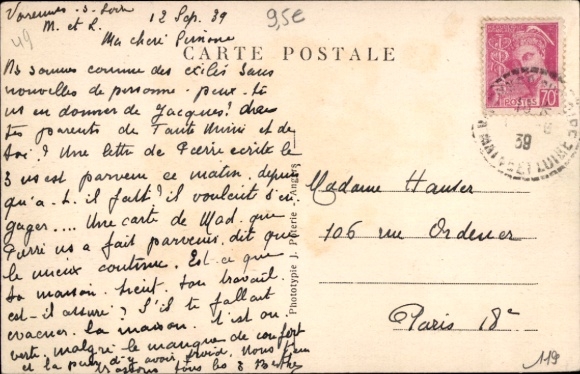 Varennes-s-Loire
M. et L.
12 Sep. 39
9,5€
49
Ma chère Simone
CARTE POSTALE
Ns sommes comme des exilés sans
nouvelles de personne - peux-tu
us en donner de Jacques? de
tes parents de Tante Mimi et de
toi? Une lettre de Pierre écrite le
3 us est parvenue ce matin. depuis
qu'a-t-il fait? il voulait s'en
gager.... Une carte de Mad. que
Pierri us a fait parvenir, dit que
le mieux continue. Est-ce que
ta maison tient. ton travail
est-il assuré? S'il te fallait
évacuer. la maison t'est ou
verte, malgré le manque de confort
et la peur d'y avoir froid. Nous
tous les 3
Phototypie J. - Angers
POSTES
70
39
MAINE ET LOIRE
Madame Hauser
106 rue Ordener
Paris 18e
119